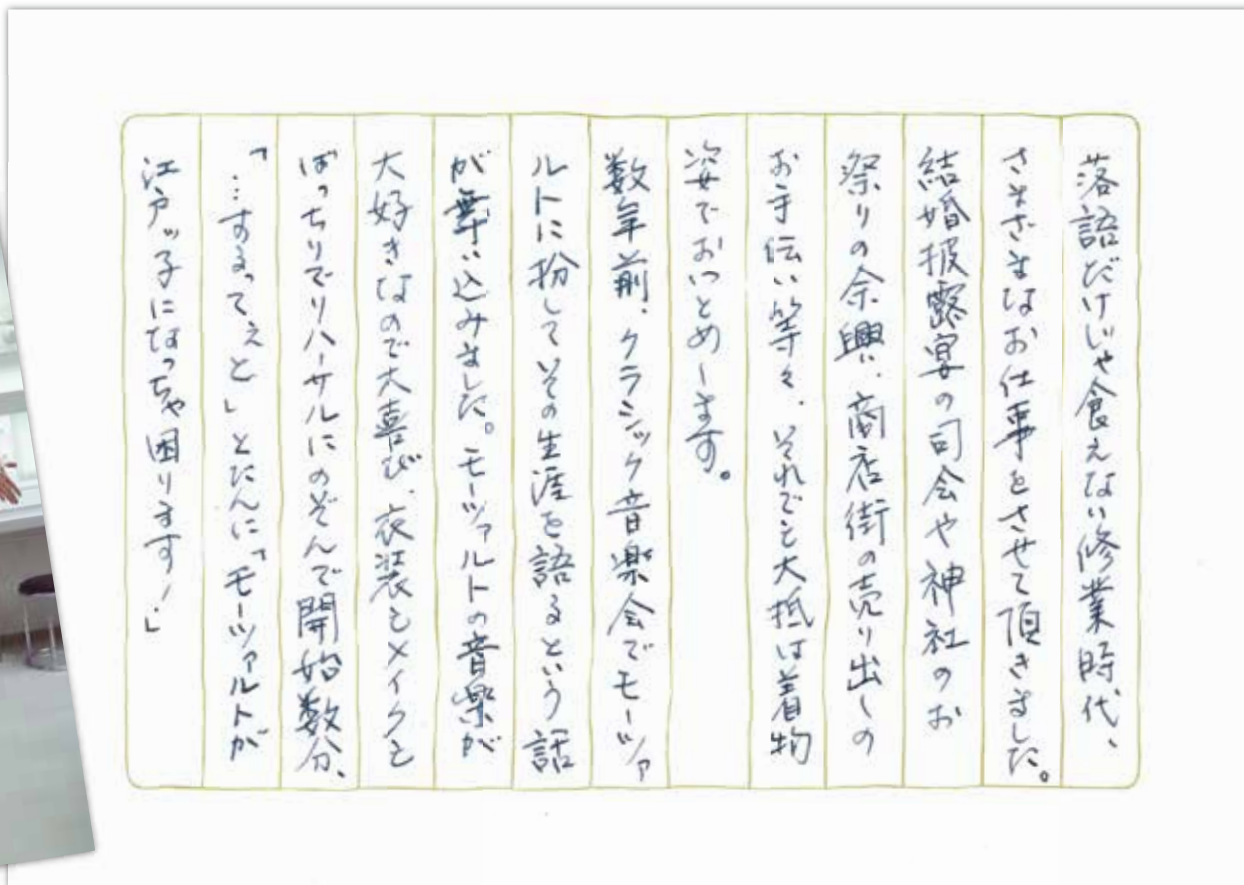 落語だけじゃ食えない修業時代、
さまざまなお仕事をさせて頂きました。
結婚披露宴の司会や神社のお
祭りの余興、商店街の売り出しの
お手伝い等々、それでも大抵は着物
姿でおつとめします。
数年前、クラシック音楽会でモーツァ
ルトに扮してその生涯を語るという話
が舞い込みました。モーツァルトの音楽が
大好きなので大喜び、衣装もメイクも
ばっちりでリハーサルにのぞんで開始数分、
「…するってぇと」とたんに「モーツァルトが
江戸ッ子になっちゃ困ります!」